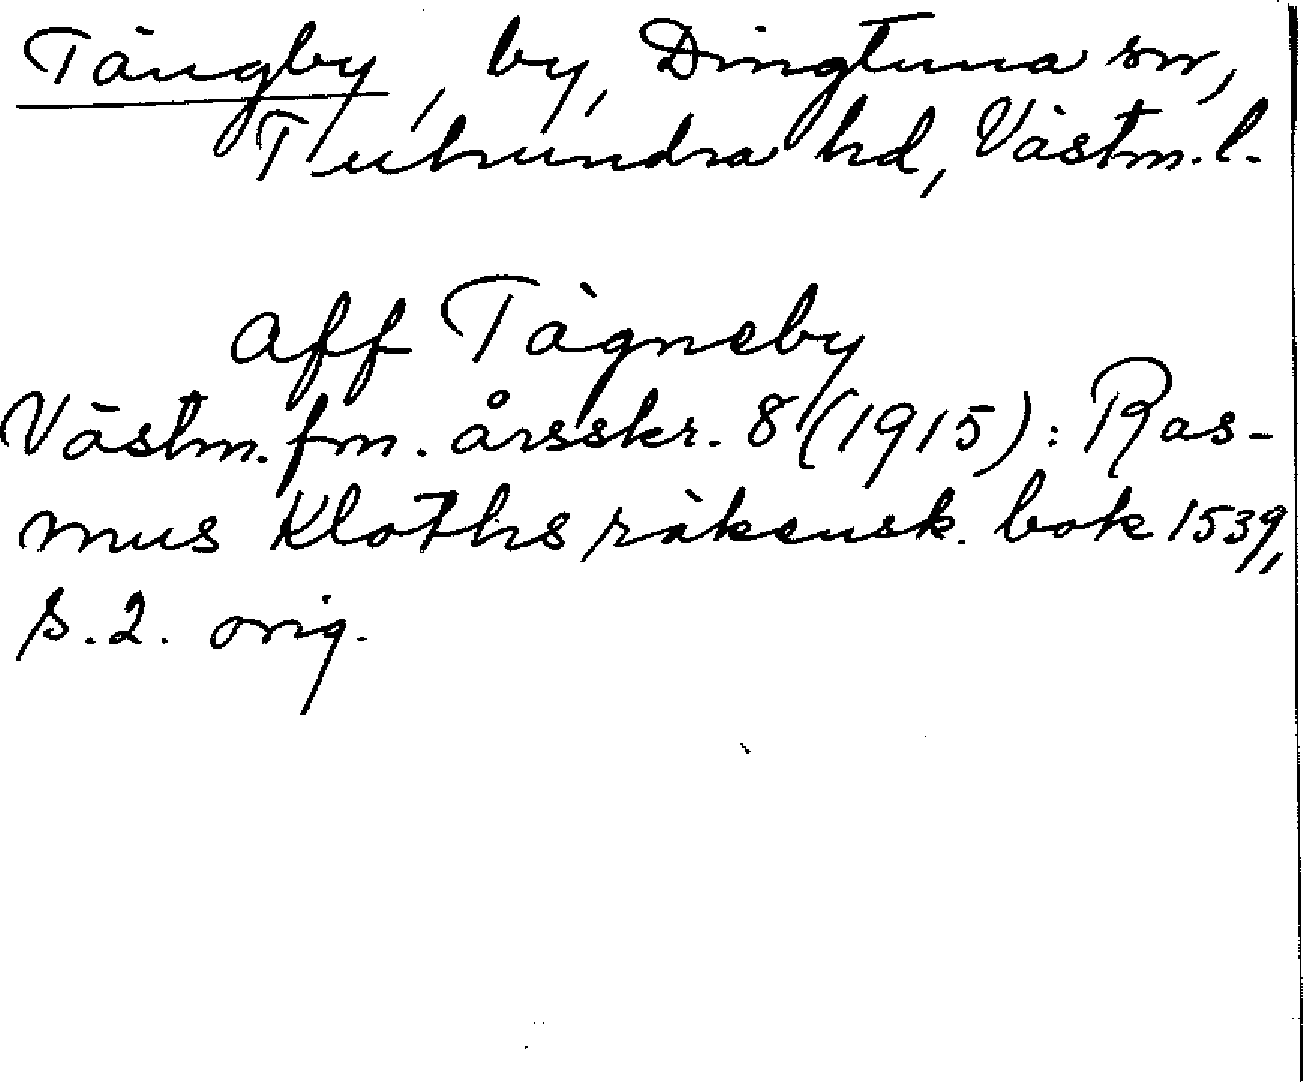 Tängby, by, Dingtuna sn,
Tuhundra hd, Västm. l.
aff Tägneby
Västm. fm. årsskr. 8 (1915): Ras-
mus Kloths räkensk. bok 1539,
s. 2. orig.